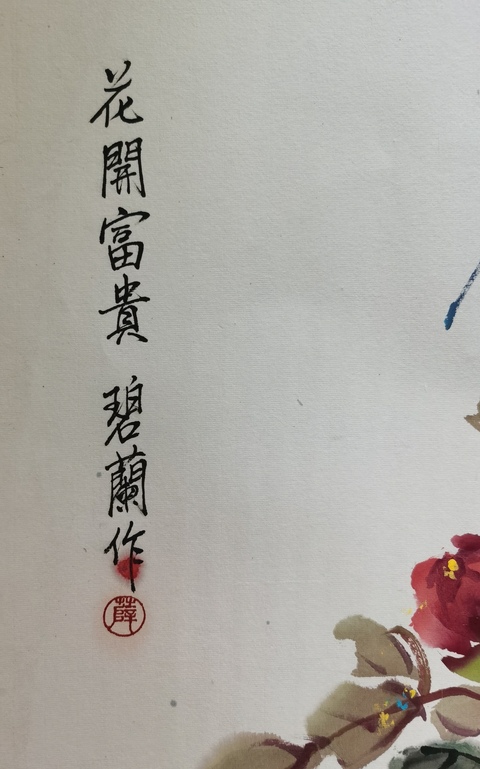 花開富貴 碧蘭作
薛